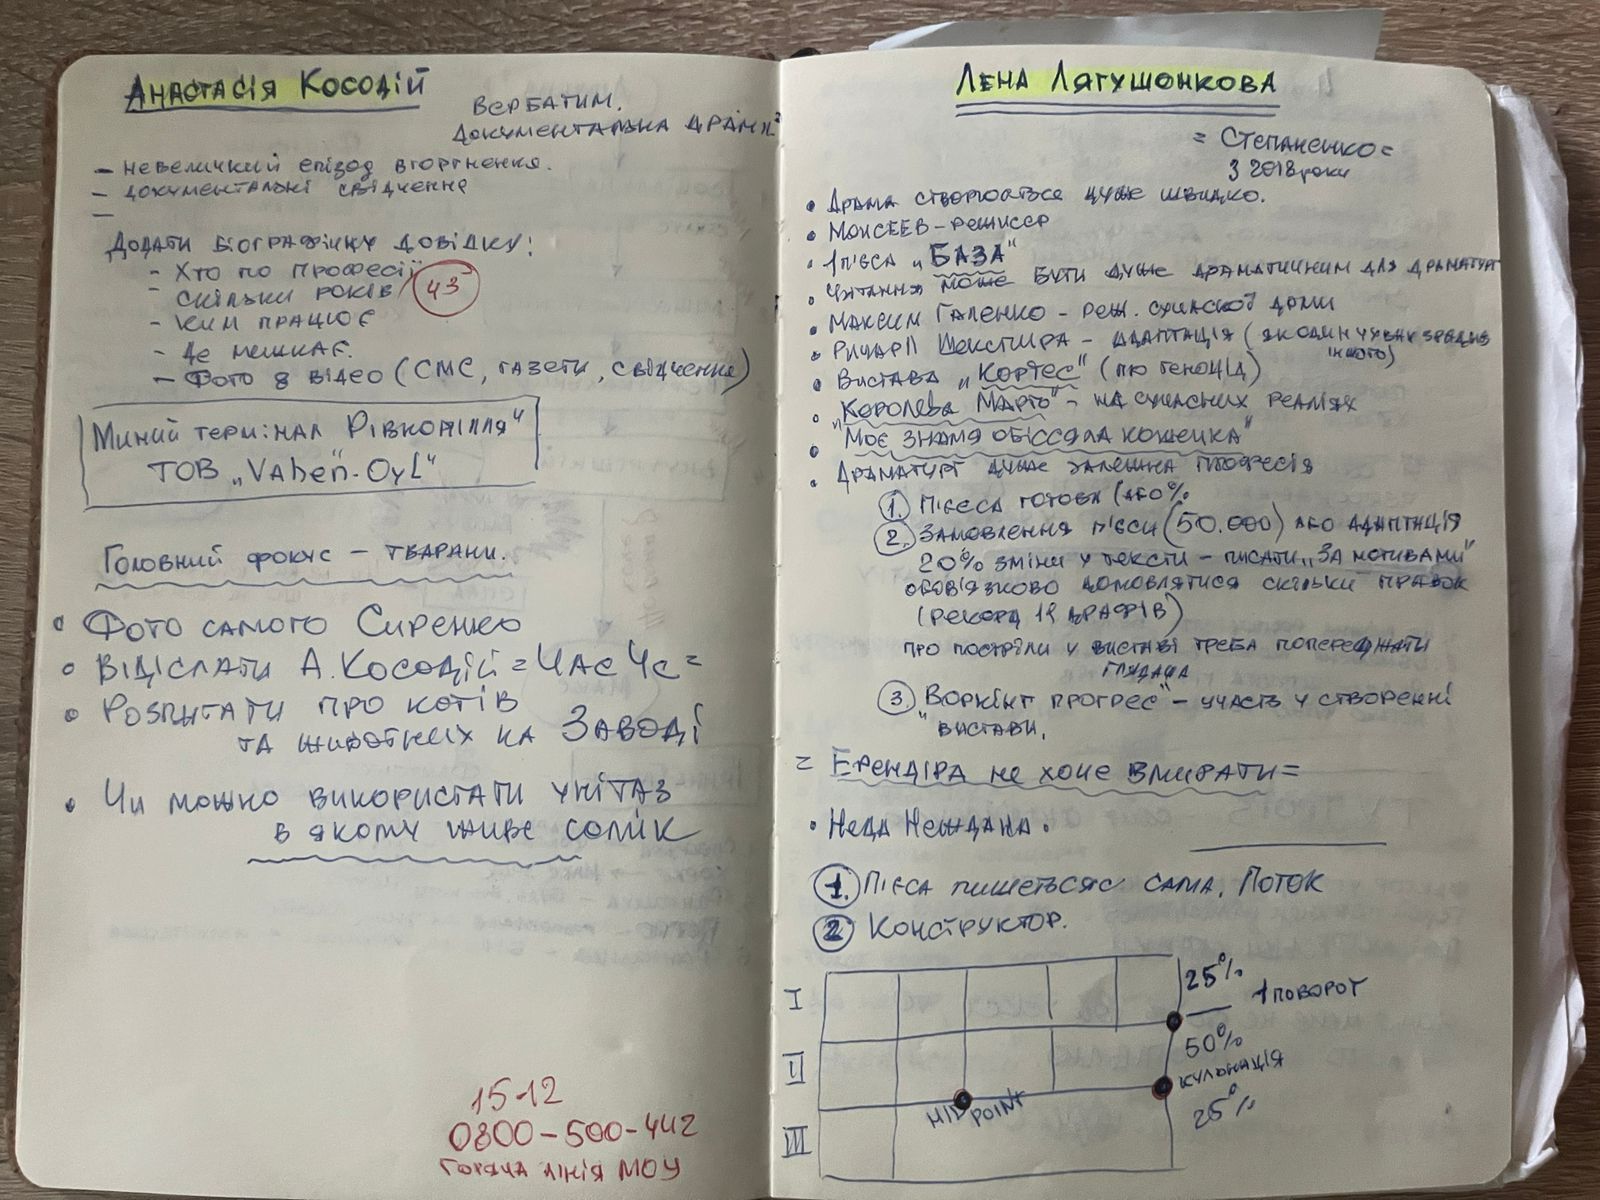 Анастасія Косодій
Вербатим.
Документальна драма
– невеличкий епізод вторгнення.
– документальні свідчення
–
Додати біографічну довідку:
– Хто по професії
– скільки років 43
– ким працює
– Де мешкає.
– Фото & відео (СМС, газети, свідчення)
Миний термінал Рівкопілля"
ТОВ „Vaheń-OyL"
Головний фокус – тварани.
Фото самого Сиренко
Відіслати А. Косодій = Час Чс =
Розпитати про котів
та животних на Заводі
Чи можно використати унітаз
в якому живе сомік
15-12
0800-500-442
Гаряча лінія МОУ
Лена Лягушонкова
= Степаненко =
з 2018 роки
• Драма створюється дуже швидко.
• Моисеев – режиссер
• 1 п'єса „База"
• Читання може бути дуже драматичним для драматург
• Максим Галенко – реж. сумской драми
• Ричард III Шекспира – адаптація (як один чувак зрадив
іншого)
• Вистава „Кортес" (про геноцід)
• „Королева Марго" – на сучасних реаліях
• "Моє знамя обіссяла кошечка"
• Драматург дуже залежна професія
1. П'єса готова (або %
2. Замовлення п'єси (50.000) або адаптація
20% зміни у тексти – писати „За мотивами"
обов'язково домовлятися скільки правок
(рекорд 19 драфтів)
про постріли у виставі треба попереджати
глядача
3. „Воркінг прогрес" – участь у створенні
вистави.
= Ерендіра не хоче вмирати =
• Неда Неждана.
1. П'єса пишеться сама. Поток
2. Конструктор.
I 25%
1 поворот
II 50%
Кульмація
MID POINT
III 25%